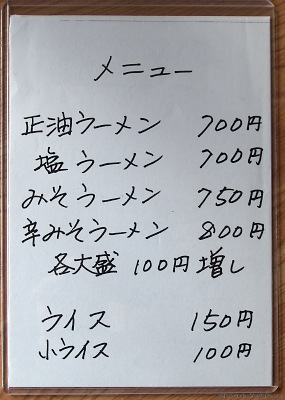 メニュー
正油ラーメン 700円
塩ラーメン 700円
みそラーメン 750円
辛みそラーメン 800円
各大盛 100円増し
ライス 150円
小ライス 100円